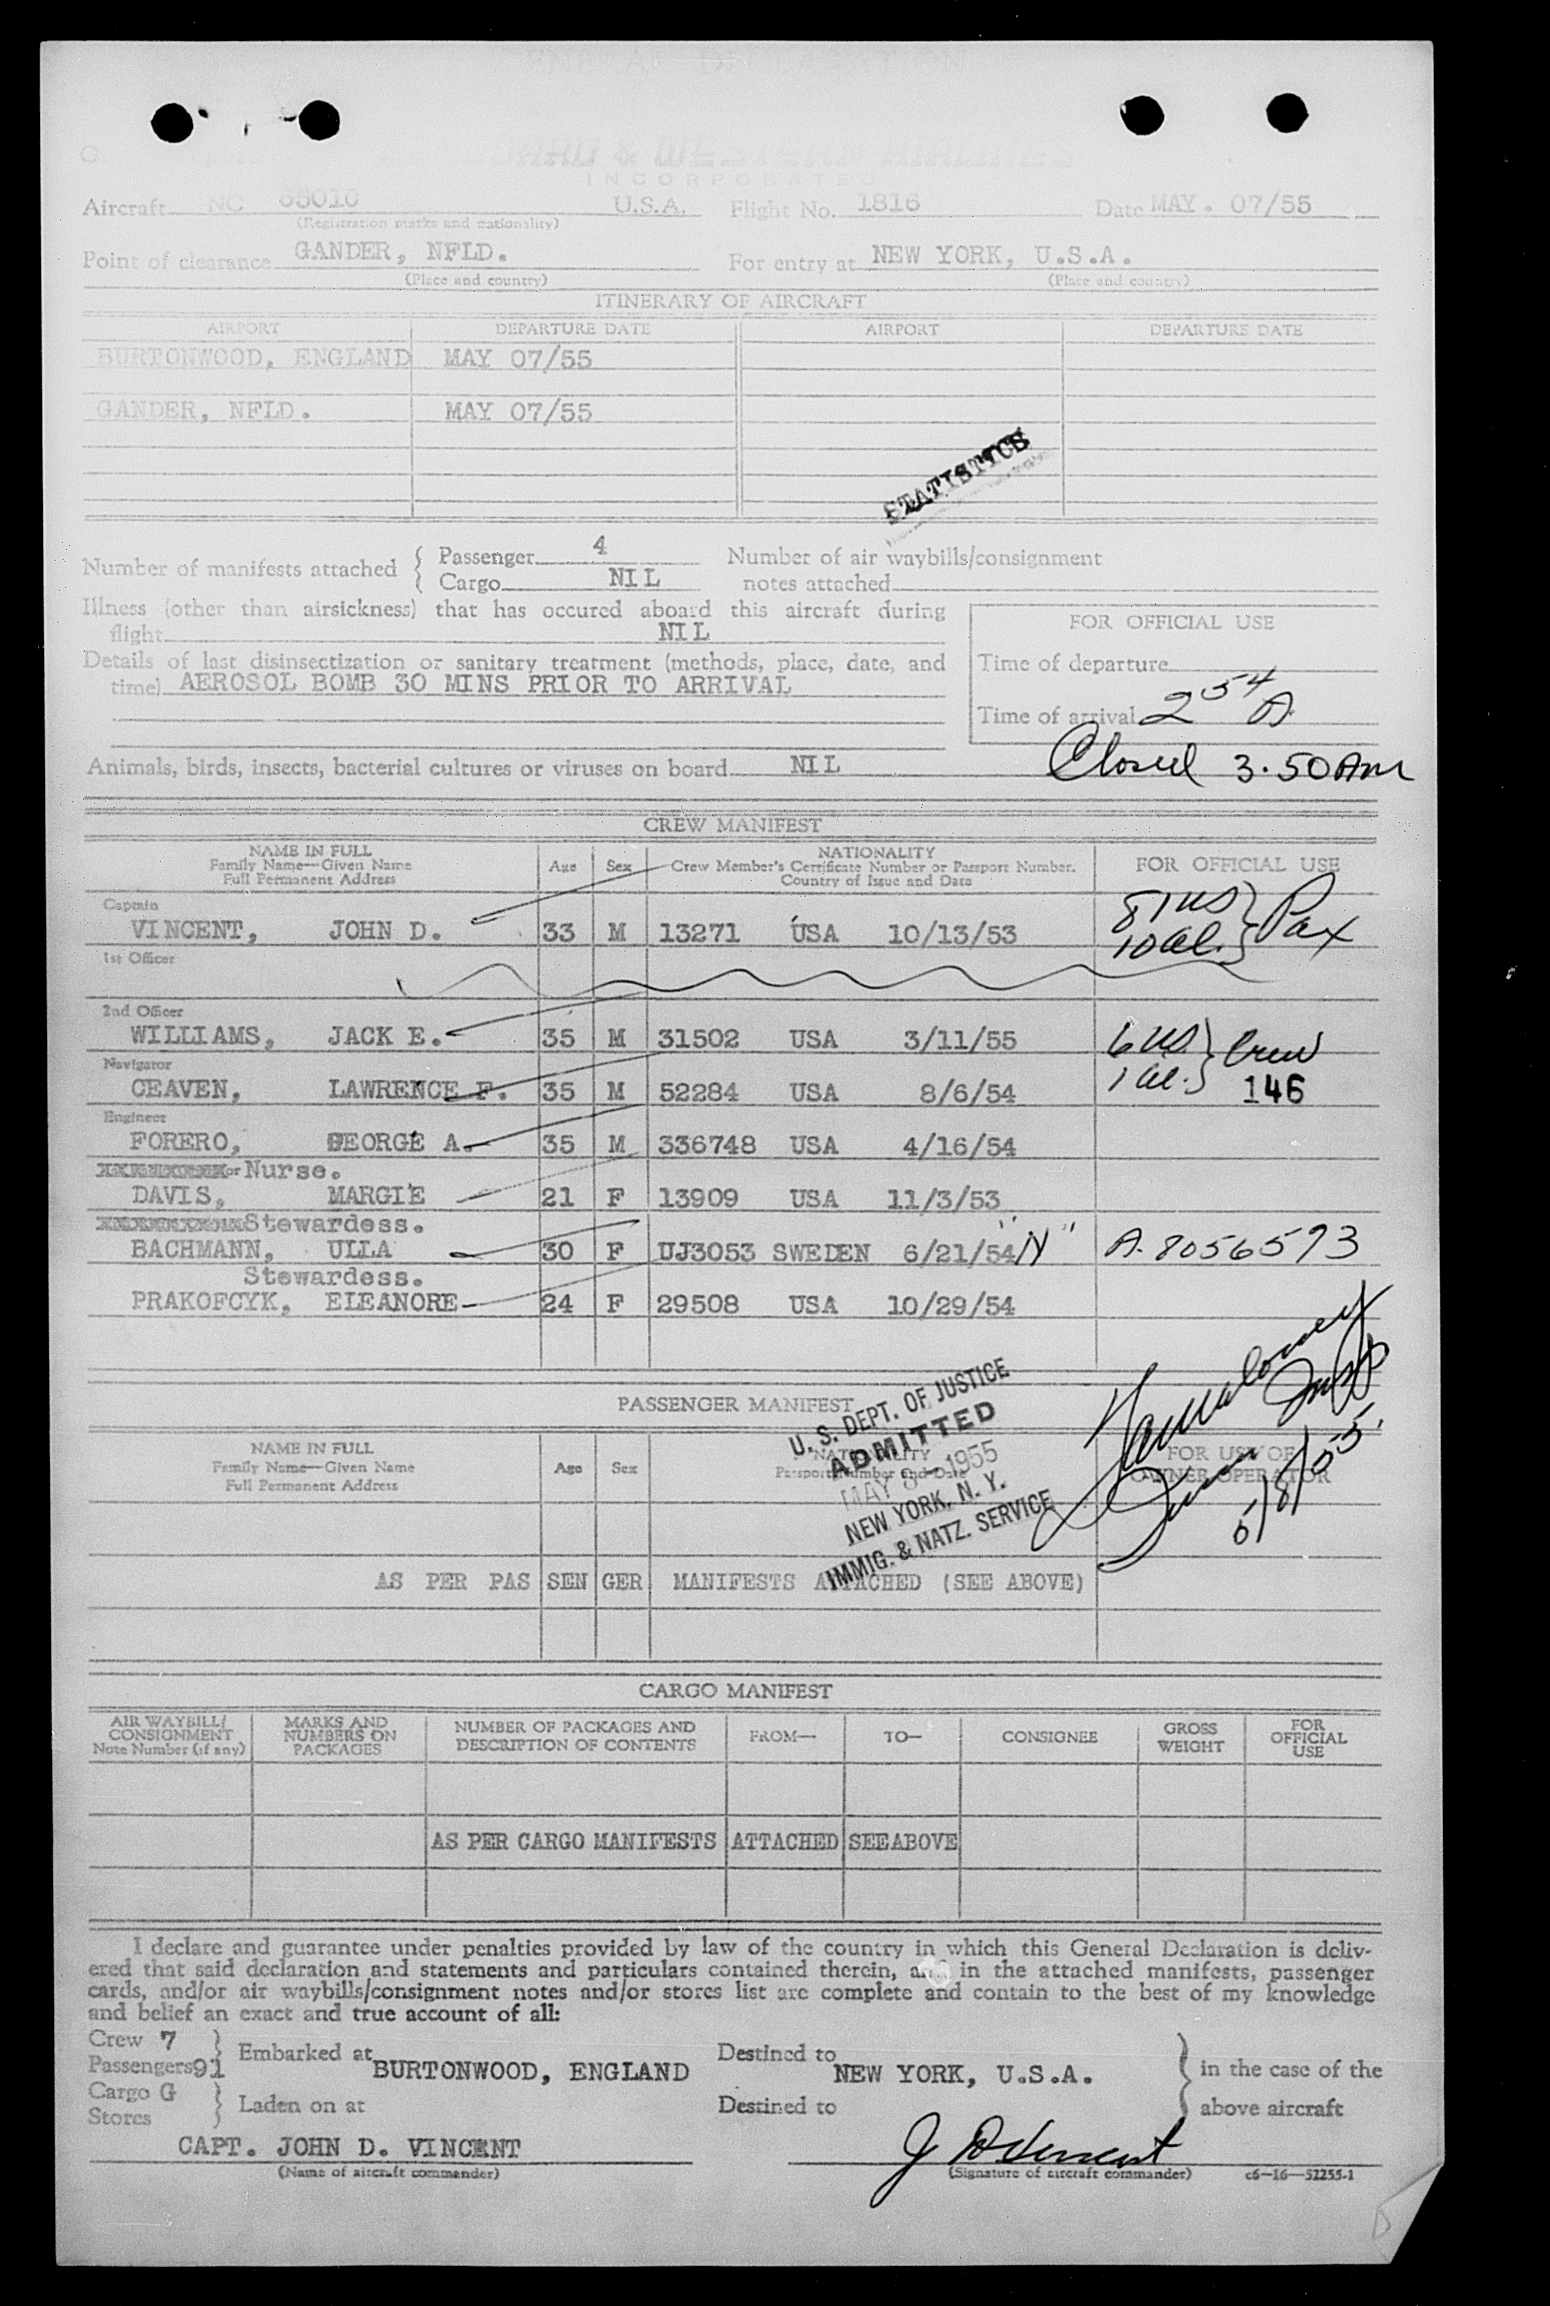 & WESTERN AIRLINES
INCORPORATED
Aircraft NC U.S.A. Flight No. 1816 Date MAY. 07/55
(Registration marks and nationality)
Point of clearance GANDER, NFLD. For entry at NEW YORK, U.S.A.
(Place and country) (Place and country)
ITINERARY OF AIRCRAFT
AIRPORT DEPARTURE DATE AIRPORT DEPARTURE DATE
BURTONWOOD, ENGLAND MAY 07/55
GANDER, NFLD. MAY 07/55
STATISTICS
Number of manifests attached { Passenger 4 Number of air waybills/consignment
Cargo NIL notes attached
Illness (other than airsickness) that has occured aboard this aircraft during
flight NIL
FOR OFFICIAL USE
Details of last disinsectization or sanitary treatment (methods, place, date, and
time) AEROSOL BOMB 30 MINS PRIOR TO ARRIVAL
Time of departure
Time of arrival 2 54 A
Closed 3.50 AM
Animals, birds, insects, bacterial cultures or viruses on board NIL
CREW MANIFEST
NAME IN FULL
Family Name—Given Name
Full Permanent Address
Age Sex
NATIONALITY
Crew Member's Certificate Number or Passport Number.
Country of Issue and Date
FOR OFFICIAL USE
Captain
VINCENT, JOHN D. 33 M 13271 USA 10/13/53
81 US } Pax
10 al.
1st Officer
2nd Officer
WILLIAMS, JACK E. 35 M 31502 USA 3/11/55
6 US } Crew
1 al.
146
Navigator
CEAVEN, LAWRENCE F. 35 M 52284 USA 8/6/54
Engineer
FORERO, GEORGE A. 35 M 336748 USA 4/16/54
or Nurse.
DAVIS, MARGIE 21 F 13909 USA 11/3/53
Stewardess.
BACHMANN, ULLA 30 F UJ3053 SWEDEN 6/21/54 A. 8056573
Stewardess.
PRAKOFCYK, ELEANORE 24 F 29508 USA 10/29/54
PASSENGER MANIFEST
U. S. DEPT. OF JUSTICE
ADMITTED
MAY 8 - 1955
NEW YORK, N. Y.
IMMIG. & NATZ. SERVICE
5/8/55.
NAME IN FULL
Family Name—Given Name
Full Permanent Address
Age Sex
NATIONALITY
Passport Number and Date
FOR USE OF
OWNER OPERATOR
AS PER PASSENGER MANIFESTS ATTACHED (SEE ABOVE)
CARGO MANIFEST
AIR WAYBILL/
CONSIGNMENT
Note Number (if any)
MARKS AND
NUMBERS ON
PACKAGES
NUMBER OF PACKAGES AND
DESCRIPTION OF CONTENTS
FROM— TO— CONSIGNEE
GROSS
WEIGHT
FOR
OFFICIAL
USE
AS PER CARGO MANIFESTS ATTACHED SEE ABOVE
I declare and guarantee under penalties provided by law of the country in which this General Declaration is deliv-
ered that said declaration and statements and particulars contained therein, in the attached manifests, passenger
cards, and/or air waybills/consignment notes and/or stores list are complete and contain to the best of my knowledge
and belief an exact and true account of all:
Crew 7
Passengers 91
} Embarked at BURTONWOOD, ENGLAND Destined to NEW YORK, U.S.A. } in the case of the
Cargo G
Stores
} Laden on at Destined to above aircraft
CAPT. JOHN D. VINCENT J D Vincent
(Name of aircraft commander) (Signature of aircraft commander) c6—16—52255-1